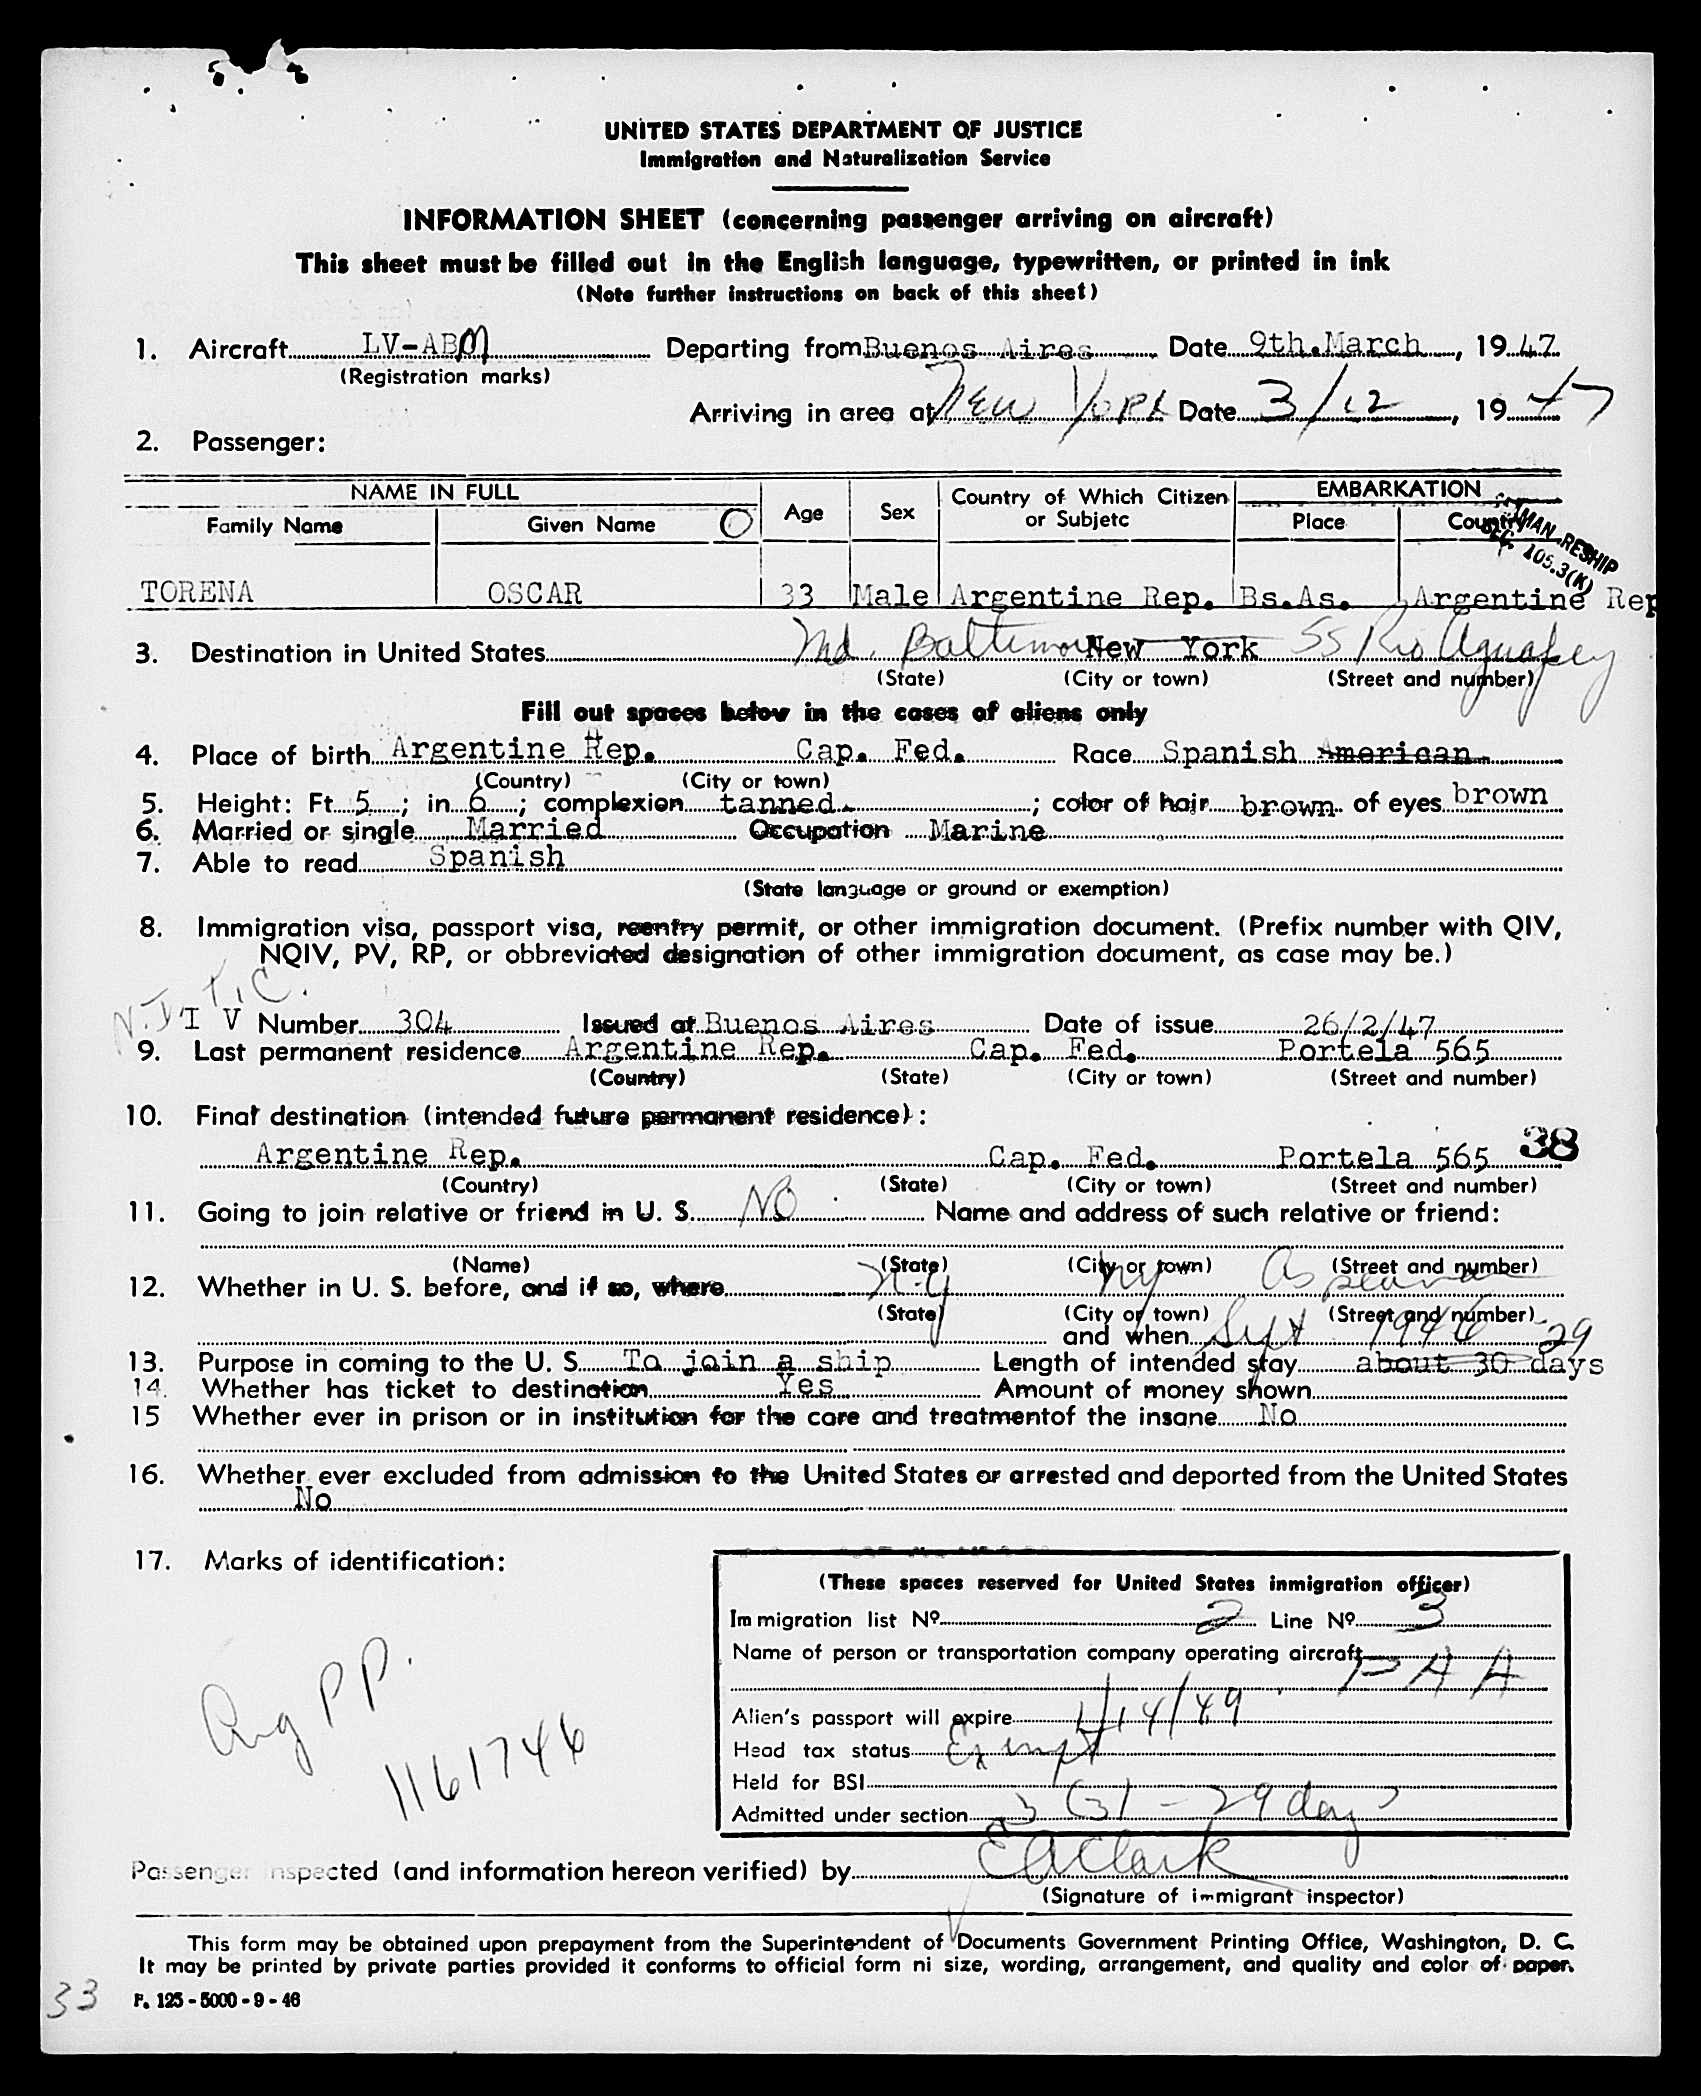 UNITED STATES DEPARTMENT OF JUSTICE
Immigration and Naturalization Service
INFORMATION SHEET (concerning passenger arriving on aircraft)
This sheet must be filled out in the English language, typewritten, or printed in ink
(Note further instructions on back of this sheet)
1. Aircraft LV-ABM Departing from Buenos Aires Date 9th.March, 1947
(Registration marks)
Arriving in area at New York Date 3/12, 1947
2. Passenger:
NAME IN FULL EMBARKATION
Family Name Given Name O Age Sex Country of Which Citizen or Subjetc Place Country
RESHIP
105.3(K)
TORENA OSCAR 33 Male Argentine Rep. Bs.As. Argentine Rep
3. Destination in United States Md. Baltimore New York SS Rio Aguapey
(State) (City or town) (Street and number)
Fill out spaces below in the cases of aliens only
4. Place of birth Argentine Rep. Cap. Fed. Race Spanish American
(Country) (City or town)
5. Height: Ft 5; in 6; complexion tanned.; color of hair brown of eyes brown
6. Married or single Married Occupation Marine
7. Able to read Spanish
(State language or ground or exemption)
8. Immigration visa, passport visa, reentry permit, or other immigration document. (Prefix number with QIV,
NQIV, PV, RP, or obbreviated designation of other immigration document, as case may be.)
T.C.
T V Number 304 Issued at Buenos Aires Date of issue 26/2/47
9. Last permanent residence Argentine Rep. Cap. Fed. Portela 565
(Country) (State) (City or town) (Street and number)
10. Final destination (intended future permanent residence):
38
Argentine Rep. Cap. Fed. Portela 565
(Country) (State) (City or town) (Street and number)
11. Going to join relative or friend in U. S. NO Name and address of such relative or friend:
(Name) (State) (City or town) (Street and number)
12. Whether in U. S. before, and if so, where N.Y NY as seaman
(State) (City or town) (Street and number)
and when Sept 1946
29
13. Purpose in coming to the U. S. To join a ship Length of intended stay about 30 days
14. Whether has ticket to destination Yes Amount of money shown
15 Whether ever in prison or in institution for the care and treatmentof the insane No
16. Whether ever excluded from admission to the United States or arrested and deported from the United States
No
17. Marks of identification:
Arg PP.
1161746
(These spaces reserved for United States inmigration officer)
Immigration list Nº 2 Line Nº 3
Name of person or transportation company operating aircraft PAA
Alien's passport will expire 1/14/49
Head tax status Exempt
Held for BSI
Admitted under section 3(3) - 29 days
Passenger inspected (and information hereon verified) by EAClark
(Signature of immigrant inspector)
This form may be obtained upon prepayment from the Superintendent of Documents Government Printing Office, Washington, D. C.
It may be printed by private parties provided it conforms to official form ni size, wording, arrangement, and quality and color of paper.
33
F. 125 - 5000 - 9 - 46